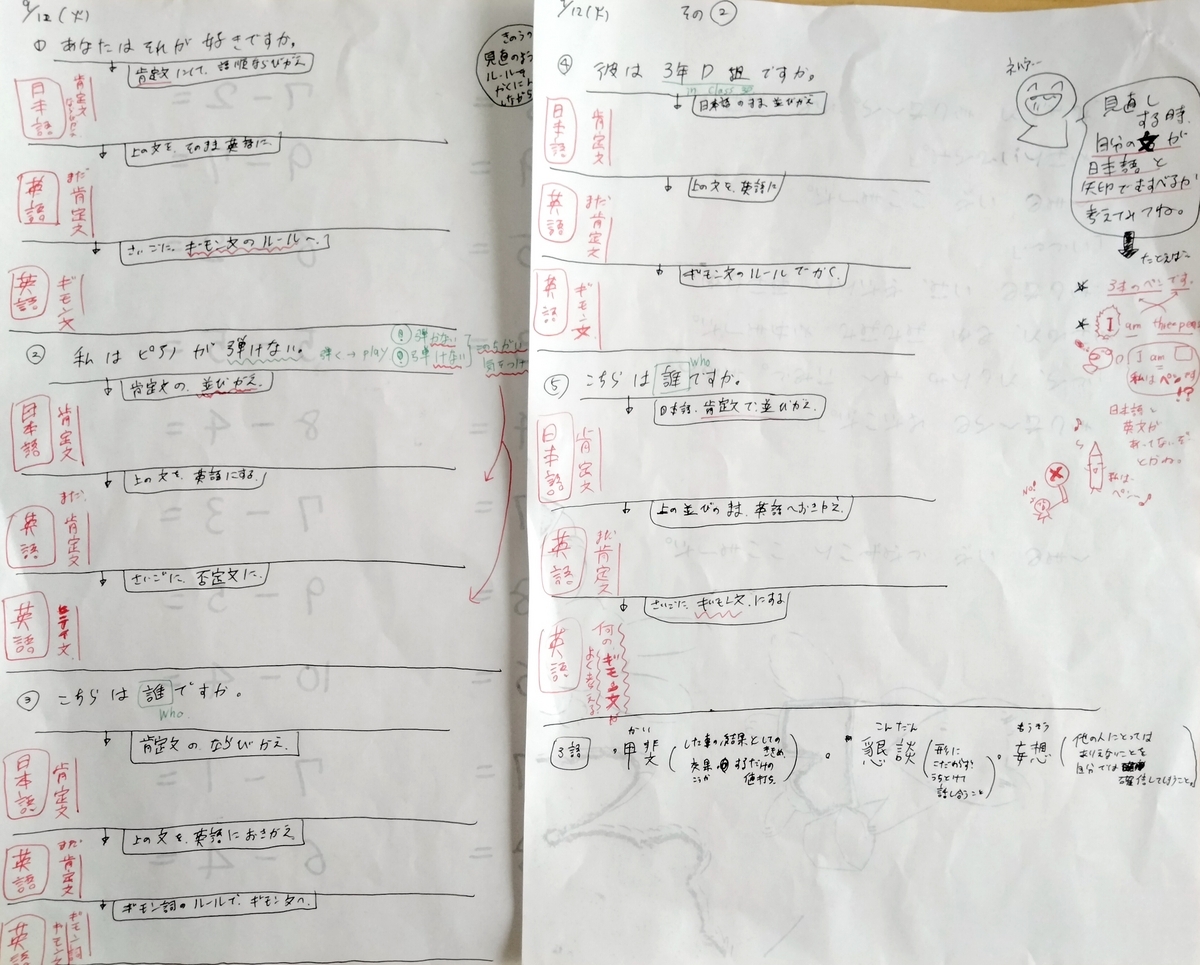 9/12(火)
① あなたは それが 好きですか。
肯定文にして、語順ならびかえ
日本語
肯定文
上の文を、そのまま英語に。
英語
まだ肯定文
さいごに、ギモン文のルールへ。
英語
ギモン文
② 私は ピアノ が 弾けない。
弾く→play
弾かない
弾けない
肯定文の、並びかえ。
日本語
肯定文
上の文を、英語にする。
英語
まだ肯定文
さいごに、否定文に。
英語
ヒテイ文
③ こちらは 誰ですか。
who
肯定文の ならびかえ。
日本語
肯定文
上の文を、英語におきかえ
英語
まだ肯定文
ギモン詞のルールで、ギモン文へ。
英語
9/12(火) その②
④ 彼は 3年D組ですか。
in class
日本語のまま並びかえ
日本語
肯定文
上の文を、英語に
英語
まだ肯定文
ギモン文のルールでかく。
英語
ギモン文
⑤ こちらは 誰ですか。
who
日本語、肯定文で、並びかえ。
日本語
肯定文
上の並びのまま、英語へおきかえ。
英語
まだ肯定文
さいごに、ギモン文にする
英語
何のギモン文か
よく考える
見直し
する時、
自分の文が
日本語と
矢印でむすべるか
考えてみてね。
たとえば
3才のペンです。
I am three pen
I am
=
私は ペンです
!?
日本語と
英文が
あってないぞ
とかね。
私は
ペン〜♪
NO!
3語
・甲斐
かい
した事の結果としての
ききめ。
効果
こうか
するだけの
値打ち。
・懇談
こんだん
形に
こだわらず
うちとけて
話し合うこと
・妄想
もうそう
他の人にとっては
ありえないことを
自分では
確信してしまうこと。